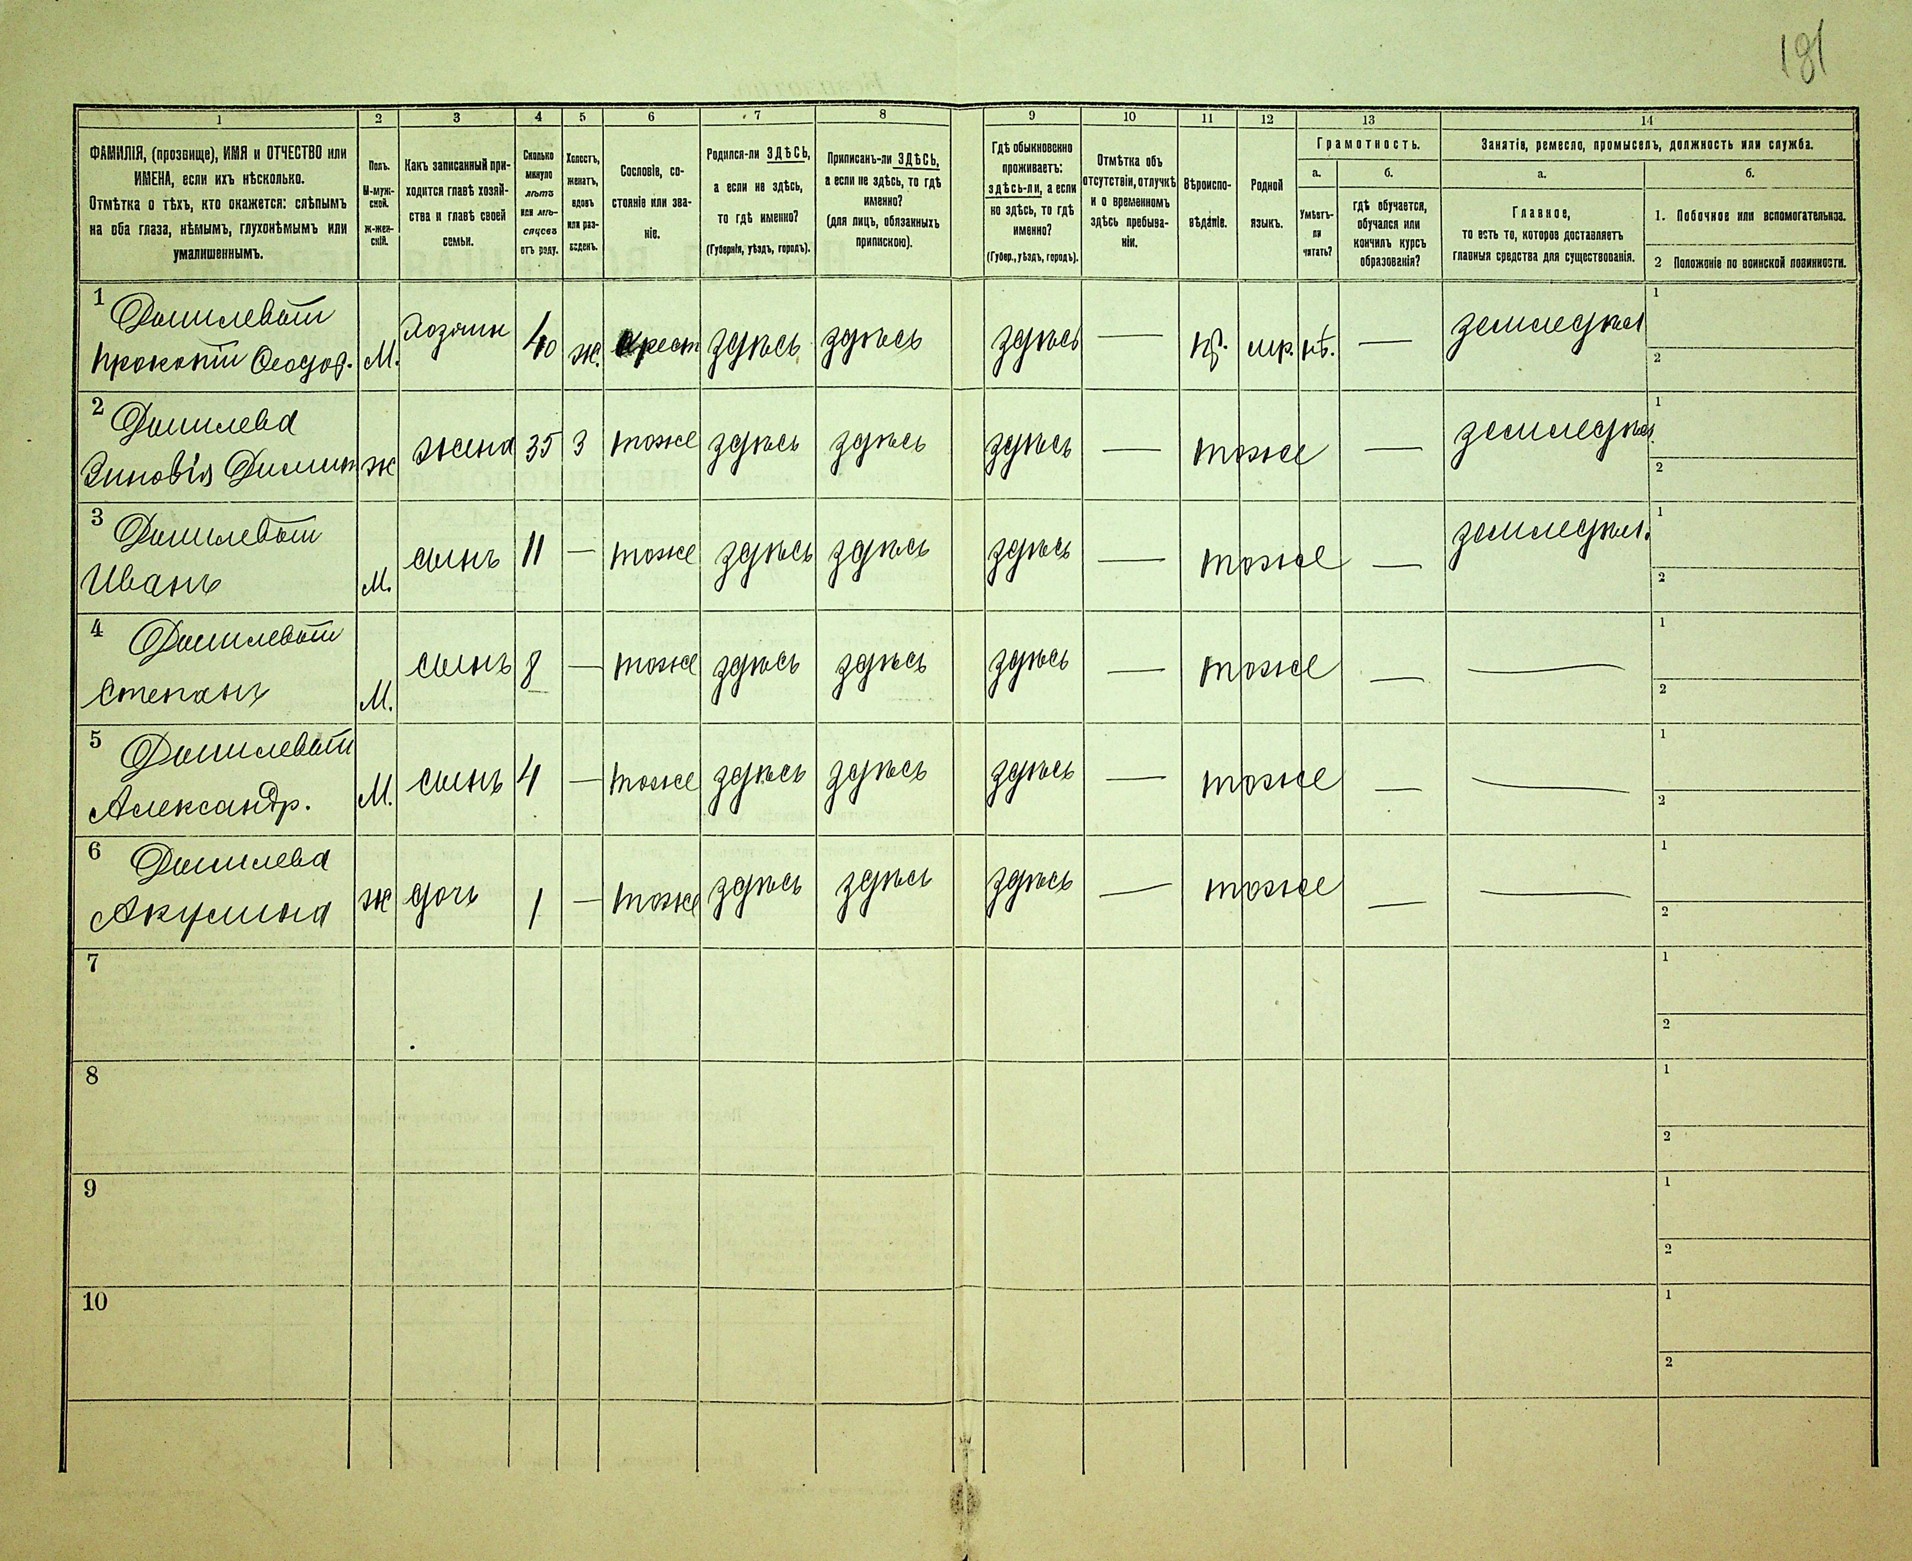 181
1 2 3 4 5 6 7 8 9 10 11 12 13 14
ФАМИЛІЯ, (прозвище), ИМЯ и ОТЧЕСТВО или
ИМЕНА, если ихъ нѣсколько.
Отмѣтка о тѣхъ, кто окажется: слѣпымъ
на оба глаза, нѣмымъ, глухонѣмымъ или
умалишеннымъ.
Полъ.
М-муж-
ской.
Ж-жен-
скій.
Какъ записанный при-
ходится главѣ хозяй-
ства и главѣ своей
семьи.
Сколько
минуло
лѣтъ
или мѣ-
сяцевъ
отъ роду.
Холостъ,
женатъ,
вдовъ
или раз-
веденъ.
Сословіе, со-
стояніе или зва-
ніе.
Родился-ли ЗДѢСЬ,
а если не здѣсь,
то гдѣ именно?
(Губернія, уѣздъ, городъ).
Приписанъ-ли ЗДѢСЬ,
а если не здѣсь, то гдѣ
именно?
(для лицъ, обязанныхъ
припискою).
Гдѣ обыкновенно
проживаетъ:
здѣсь-ли, а если
не здѣсь, то гдѣ
именно?
(Губер., уѣздъ, городъ).
Отмѣтка объ
отсутствіи, отлучкѣ
и о временномъ
здѣсь пребыва-
ніи.
Вѣроиспо-
вѣданіе.
Родной
языкъ.
Грамотность.
а.
Умѣетъ-
ли
читать?
б.
гдѣ обучается,
обучался или
кончилъ курсъ
образованія?
Занятія, ремесло, промыселъ, должность или служба.
а.
Главное,
то есть то, которое доставляетъ
главныя средства для существованія.
б.
1. Побочное или вспомогательное.
2 Положеніе по воинской повинности.
1
Прокопій Ѳеодор. М. Хозяин 40 ж. крест здѣсь здѣсь здѣсь — — землед
1
2
2
Зиновія Димит ж жена 35 з тоже здѣсь здѣсь здѣсь — тоже — землед
1
2
3
Иванъ М. сынъ 11 — тоже здѣсь здѣсь здѣсь — тоже — землед
1
2
4
Степанъ М. сынъ 8 — тоже здѣсь здѣсь здѣсь — тоже — —
1
2
5
Александр. М. сынъ 4 — тоже здѣсь здѣсь здѣсь — тоже — —
1
2
6
Акулина ж дочь 1 — тоже здѣсь здѣсь здѣсь — тоже — —
1
2
7
1
2
8
1
2
9
1
2
10
1
2